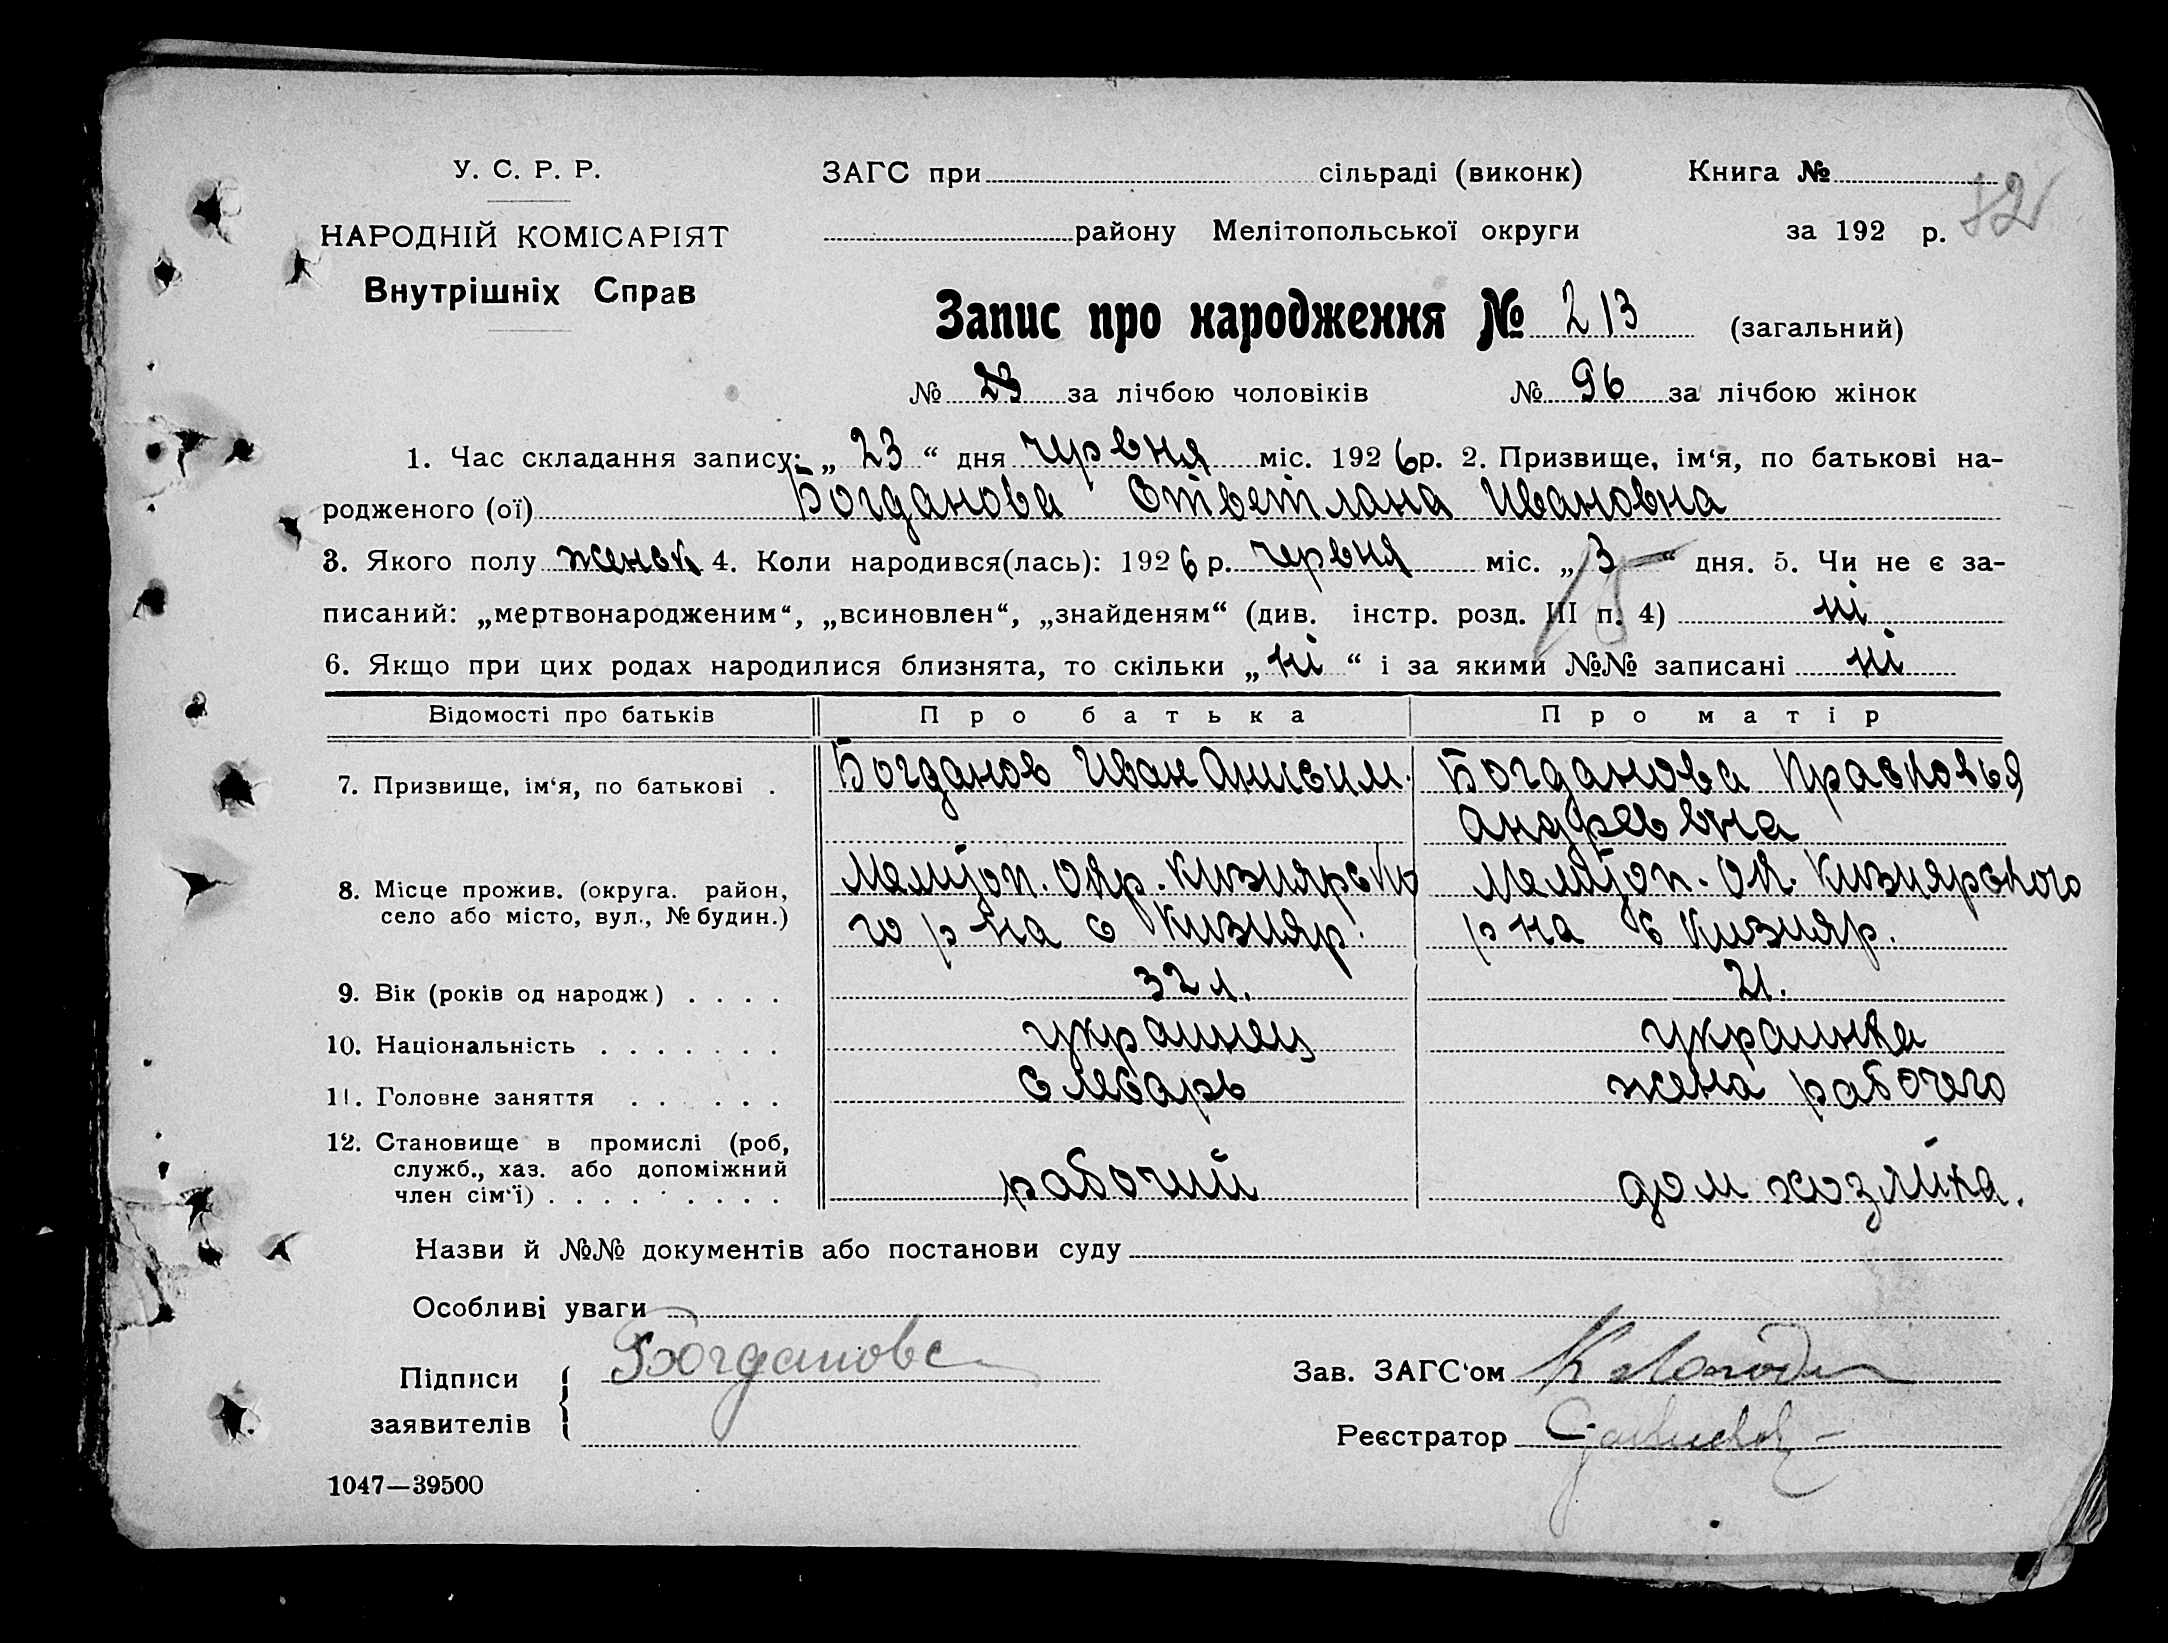 У. С. Р. Р.
НАРОДНІЙ КОМІСАРІЯТ
Внутрішніх Справ
ЗАГС при сільраді (виконк) Книга №
району Мелітопольської округи за 192 р.
82
Запис про народження № 213 (загальний)
№ за лічбою чоловіків № 96 за лічбою жінок
1. Час складання запису: „ 23 “ дня червня міс. 1926 р. 2. Призвище, ім‘я, по батькові на-
родженого (ої) Богданова Стветлана Ивановна
3. Якого полу женск 4. Коли народився(лась): 1926 р. червня міс. „ 3 “ дня. 5. Чи не є за-
15
писаний: „мертвонародженим“, „всиновлен“, „знайденям“ (див. інстр. розд. III п. 4) ні
6. Якщо при цих родах народилися близнята, то скільки „ ні “ і за якими №№ записані ні
Відомості про батьків Про батька Про матір
7. Призвище, ім‘я, по батькові . Богданов Иван Анисим. Богданова Прасковья
Андреевна
8. Місце прожив. (округа. район, Мелітоп. Окр. Кизиярско Мелітоп. Ок. Кизиярского
село або місто, вул., № будин.) го р на с Кизияр. р на с Кизияр.
9. Вік (років од народж) . . . . 32 л. 21.
10. Національність . . . . . . . украинец украинка
11. Головне заняття . . . . . . слесарь жена рабочего
12. Становище в промислі (роб,
служб., хаз. або допоміжний
член сім‘ї) . . . . . . . . . рабочий дом хозяйка.
Назви й №№ документів або постанови суду
Особливі уваги
Підписи
заявителів
Богданова
Зав. ЗАГС‘ом
Реєстратор
1047—39500